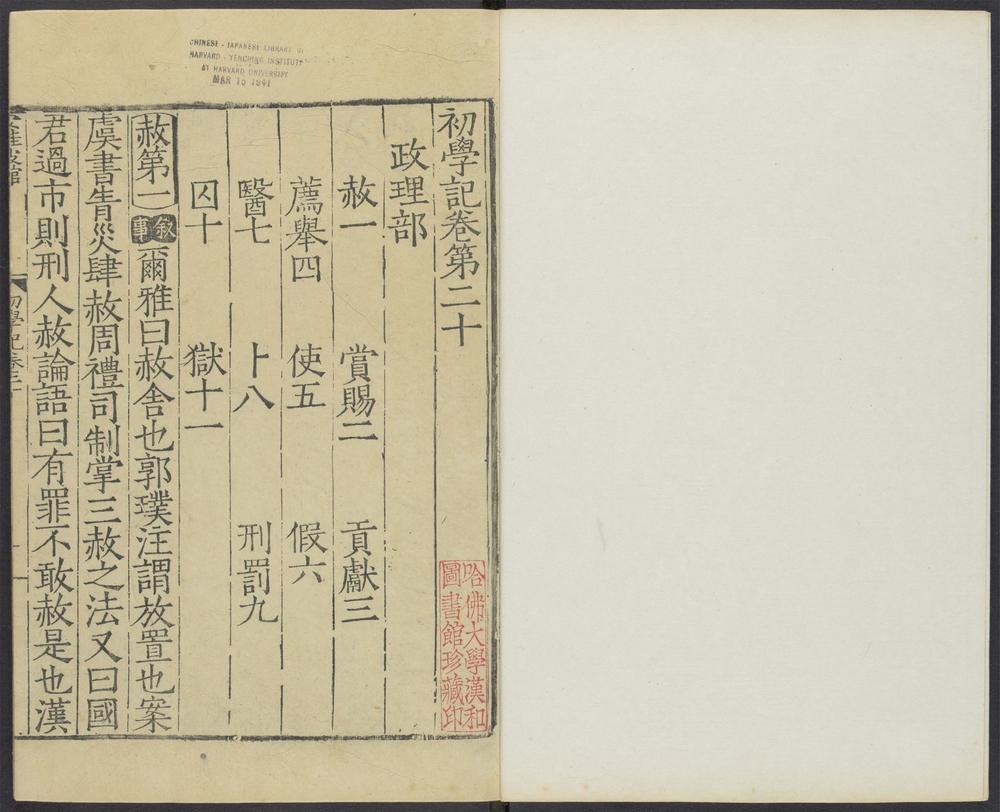 初學記卷第二十
政理部
赦一 賞賜二 貢獻三
薦舉四 使五 假六
醫七 卜八 刑罰九
囚十 獄十一
赦第一 敘事 爾雅曰赦舍也郭璞注謂放置也案
虞書眚災肆赦周禮司制掌三赦之法又曰國
君過市則刑人赦論語曰有罪不敢赦是也漢
初學記卷二十
哈佛大學漢和
圖書館珍藏印
CHINESE - JAPANESE LIBRARY OF
HARVARD - YENCHING INSTITUTE
AT HARVARD UNIVERSITY
MAR 15 1941